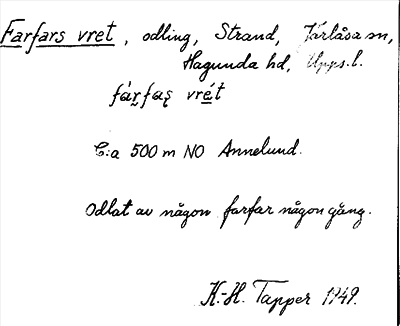 Farfars vret, odling, Strand, Järlåsa sn,
Hagunda hd, Upps.l.
fàr̥fas̨ vrét
C:a 500 m NO Annelund.
Odlat av någon farfar någon gång.
K.-H. Tapper 1949.